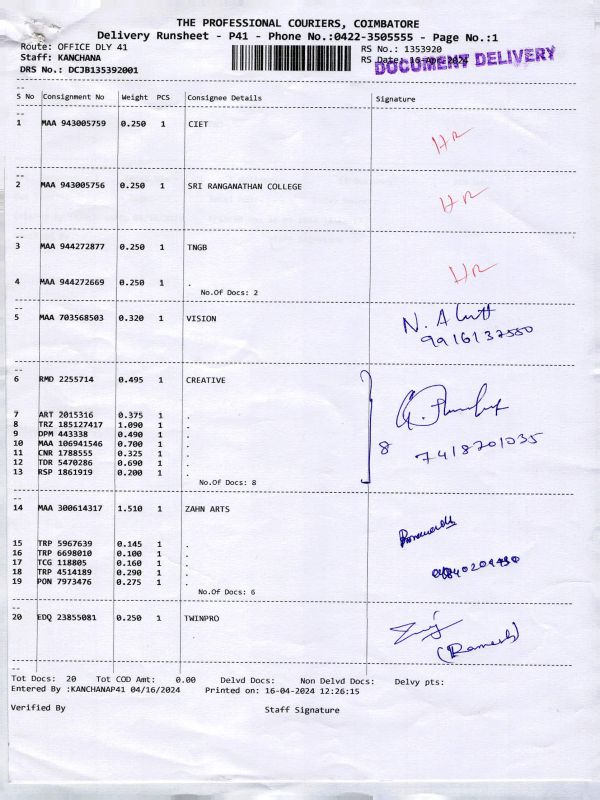 THE PROFESSIONAL COURIERS, COIMBATORE
Delivery Runsheet - P41 - Phone No.:0422-3505555 - Page No.:1
Route: OFFICE DLY 41 RS No.: 1353920
Staff: KANCHANA RS Date: 16-Apr-2024
DOCUMENT DELIVERY
DRS No.: DCJB135392001
S No Consignment No Weight PCS Consignee Details Signature
1 MAA 943005759 0.250 1 CIET
HR
2 MAA 943005756 0.250 1 SRI RANGANATHAN COLLEGE
HR
3 MAA 944272877 0.250 1 TNGB
HR
4 MAA 944272669 0.250 1 .
No.Of Docs: 2
5 MAA 703568503 0.320 1 VISION
N.
9916137550
6 RMD 2255714 0.495 1 CREATIVE
7 ART 2015316 0.375 1 .
8 TRZ 185127417 1.090 1 .
9 DPM 443338 0.490 1 .
10 MAA 106941546 0.700 1 .
11 CNR 1788555 0.325 1 .
12 TDR 5470286 0.690 1 .
13 RSP 1861919 0.200 1 .
8 7418701035
No.Of Docs: 8
14 MAA 300614317 1.510 1 ZAHN ARTS
15 TRP 5967639 0.145 1 .
16 TRP 6698010 0.100 1 .
17 TCG 118805 0.160 1 .
18 TRP 4514189 0.290 1 .
19 PON 7973476 0.275 1 .
No.Of Docs: 6
20 EDQ 23855081 0.250 1 TWINPRO
(Ramesh)
Tot Docs: 20 Tot COD Amt: 0.00 Delvd Docs: Non Delvd Docs: Delvy pts:
Entered By :KANCHANAP41 04/16/2024 Printed on: 16-04-2024 12:26:15
Verified By Staff Signature